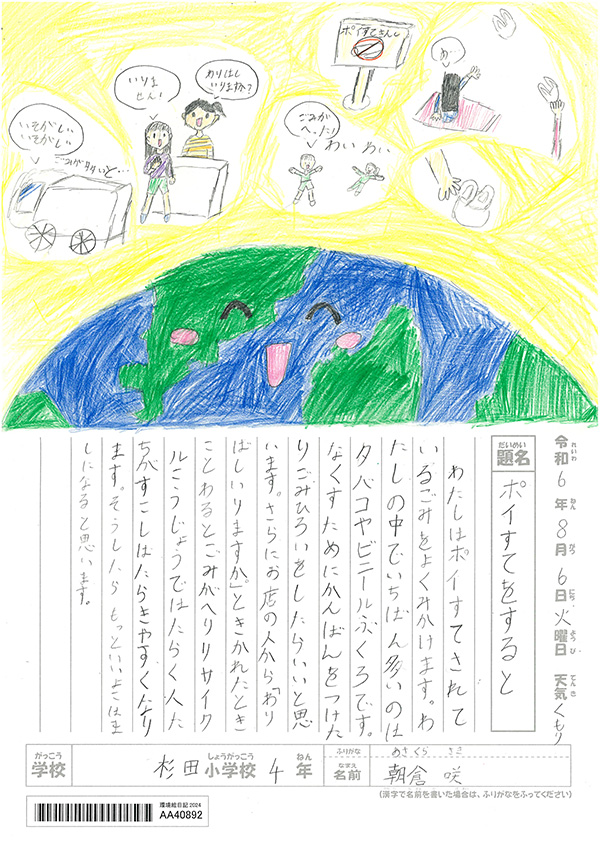 ポイすてきんし
か…
わりばし
いりますか?
いりま
せん!
いそがしい
いそがしい
ごみが多いと…
ごみが
へった!
わいわい
令和6年8月6日火曜日 天気くもり
れいわ ねん がつ にち ようび てんき
だいめい
題名
ポイすてをすると
わたしはポイすてされて
いるごみをよくみかけます。わ
たしの中でいちばん多いのは
タバコやビニールぶくろです。
なくすためにかんばんをつけた
りごみひろいをしたらいいと思
います。さらにお店の人から「わり
ばしいりますか。」ときかれたとき
ことわるとごみがへりリサイク
ルこうじょうではたらく人た
ちがすこしはたらきやすくなり
ます。そうしたらもっといいよこはま
しになると思います。
がっこう
学校
杉田小学校4年
しょうがっこう ねん
ふりがな
あさくら さき
なまえ
名前
朝倉 咲
(漢字で名前を書いた場合は、ふりがなをふってください)
環境絵日記2024
AA40892